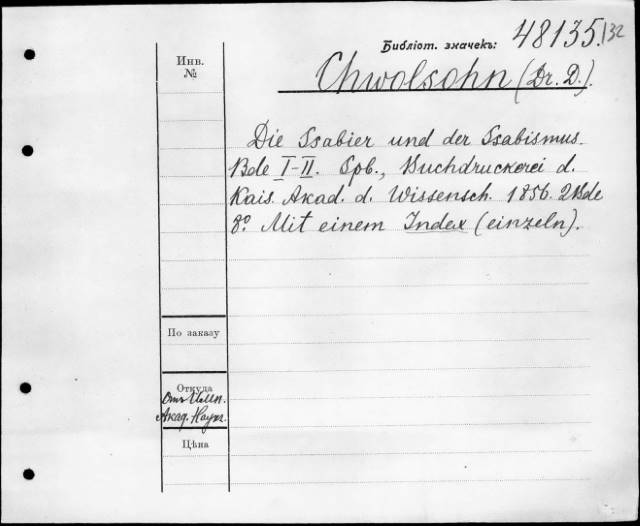 Библіот. значекъ: 48135./32
Инв.
№
Chwolsohn (Dr. D.).
Die Ssabier und der Ssabismus.
Bde I-II. Spb., Buchdruckerei d.
Kais. Akad. d. Wissensch. 1856. 2 Bde
8º. Mit einem Index (einzeln).
По заказу
Откуда
Отъ Имп.
Акад. Наукъ.
Цѣна